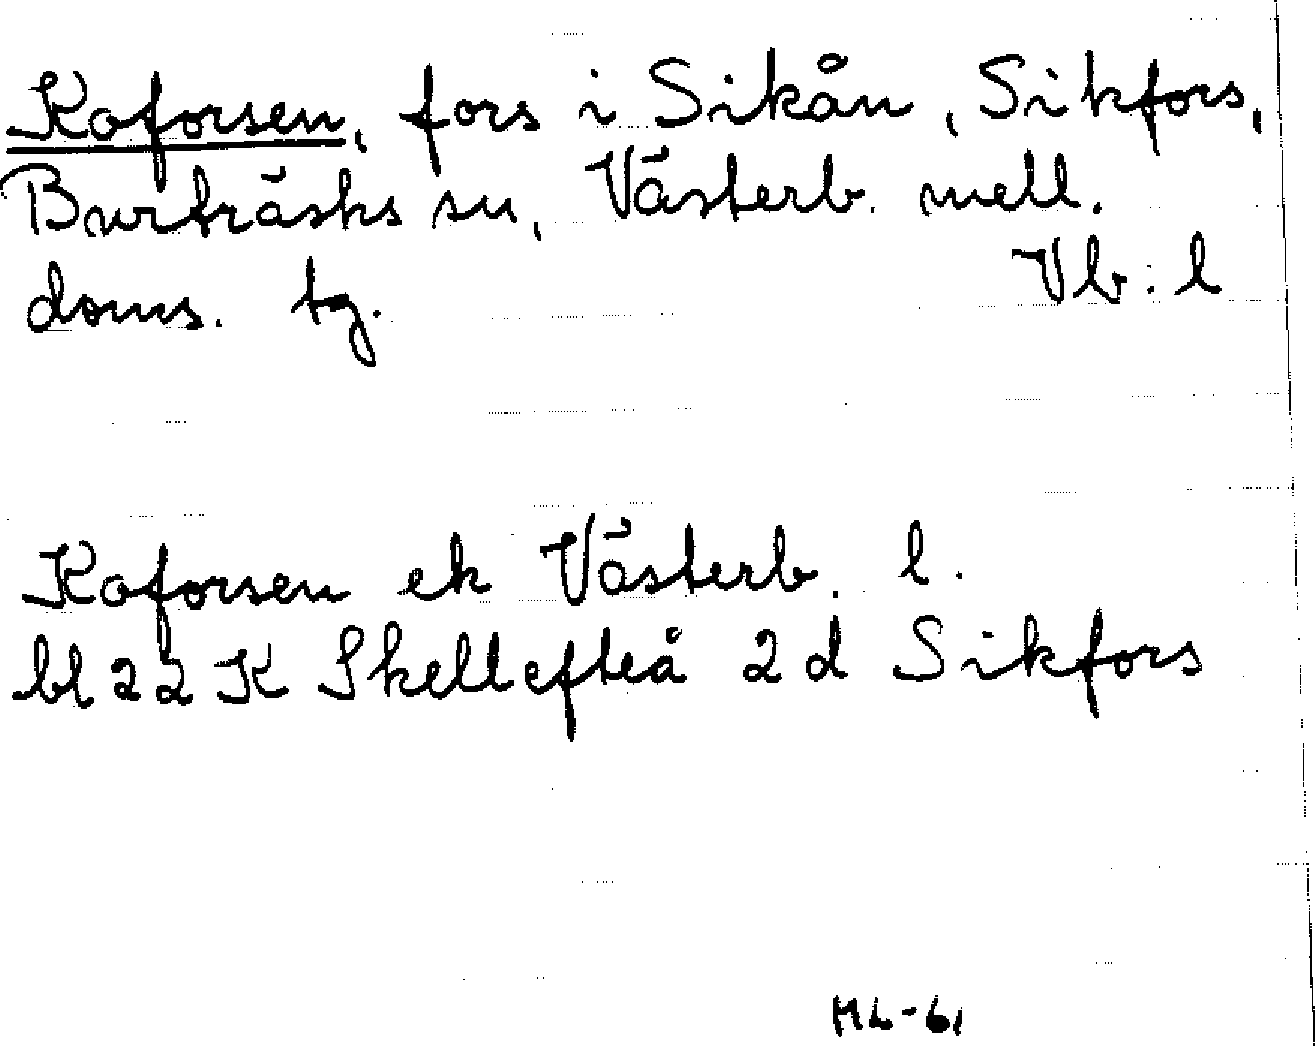 Koforsen, fors i Sikån, Sikfors,
Burträsks sn, Västerb. mell.
doms. tg. Vb. l
Koforsen ek Västerb. l.
bl 22 K Skellefteå 2 d Sikfors
ML-61